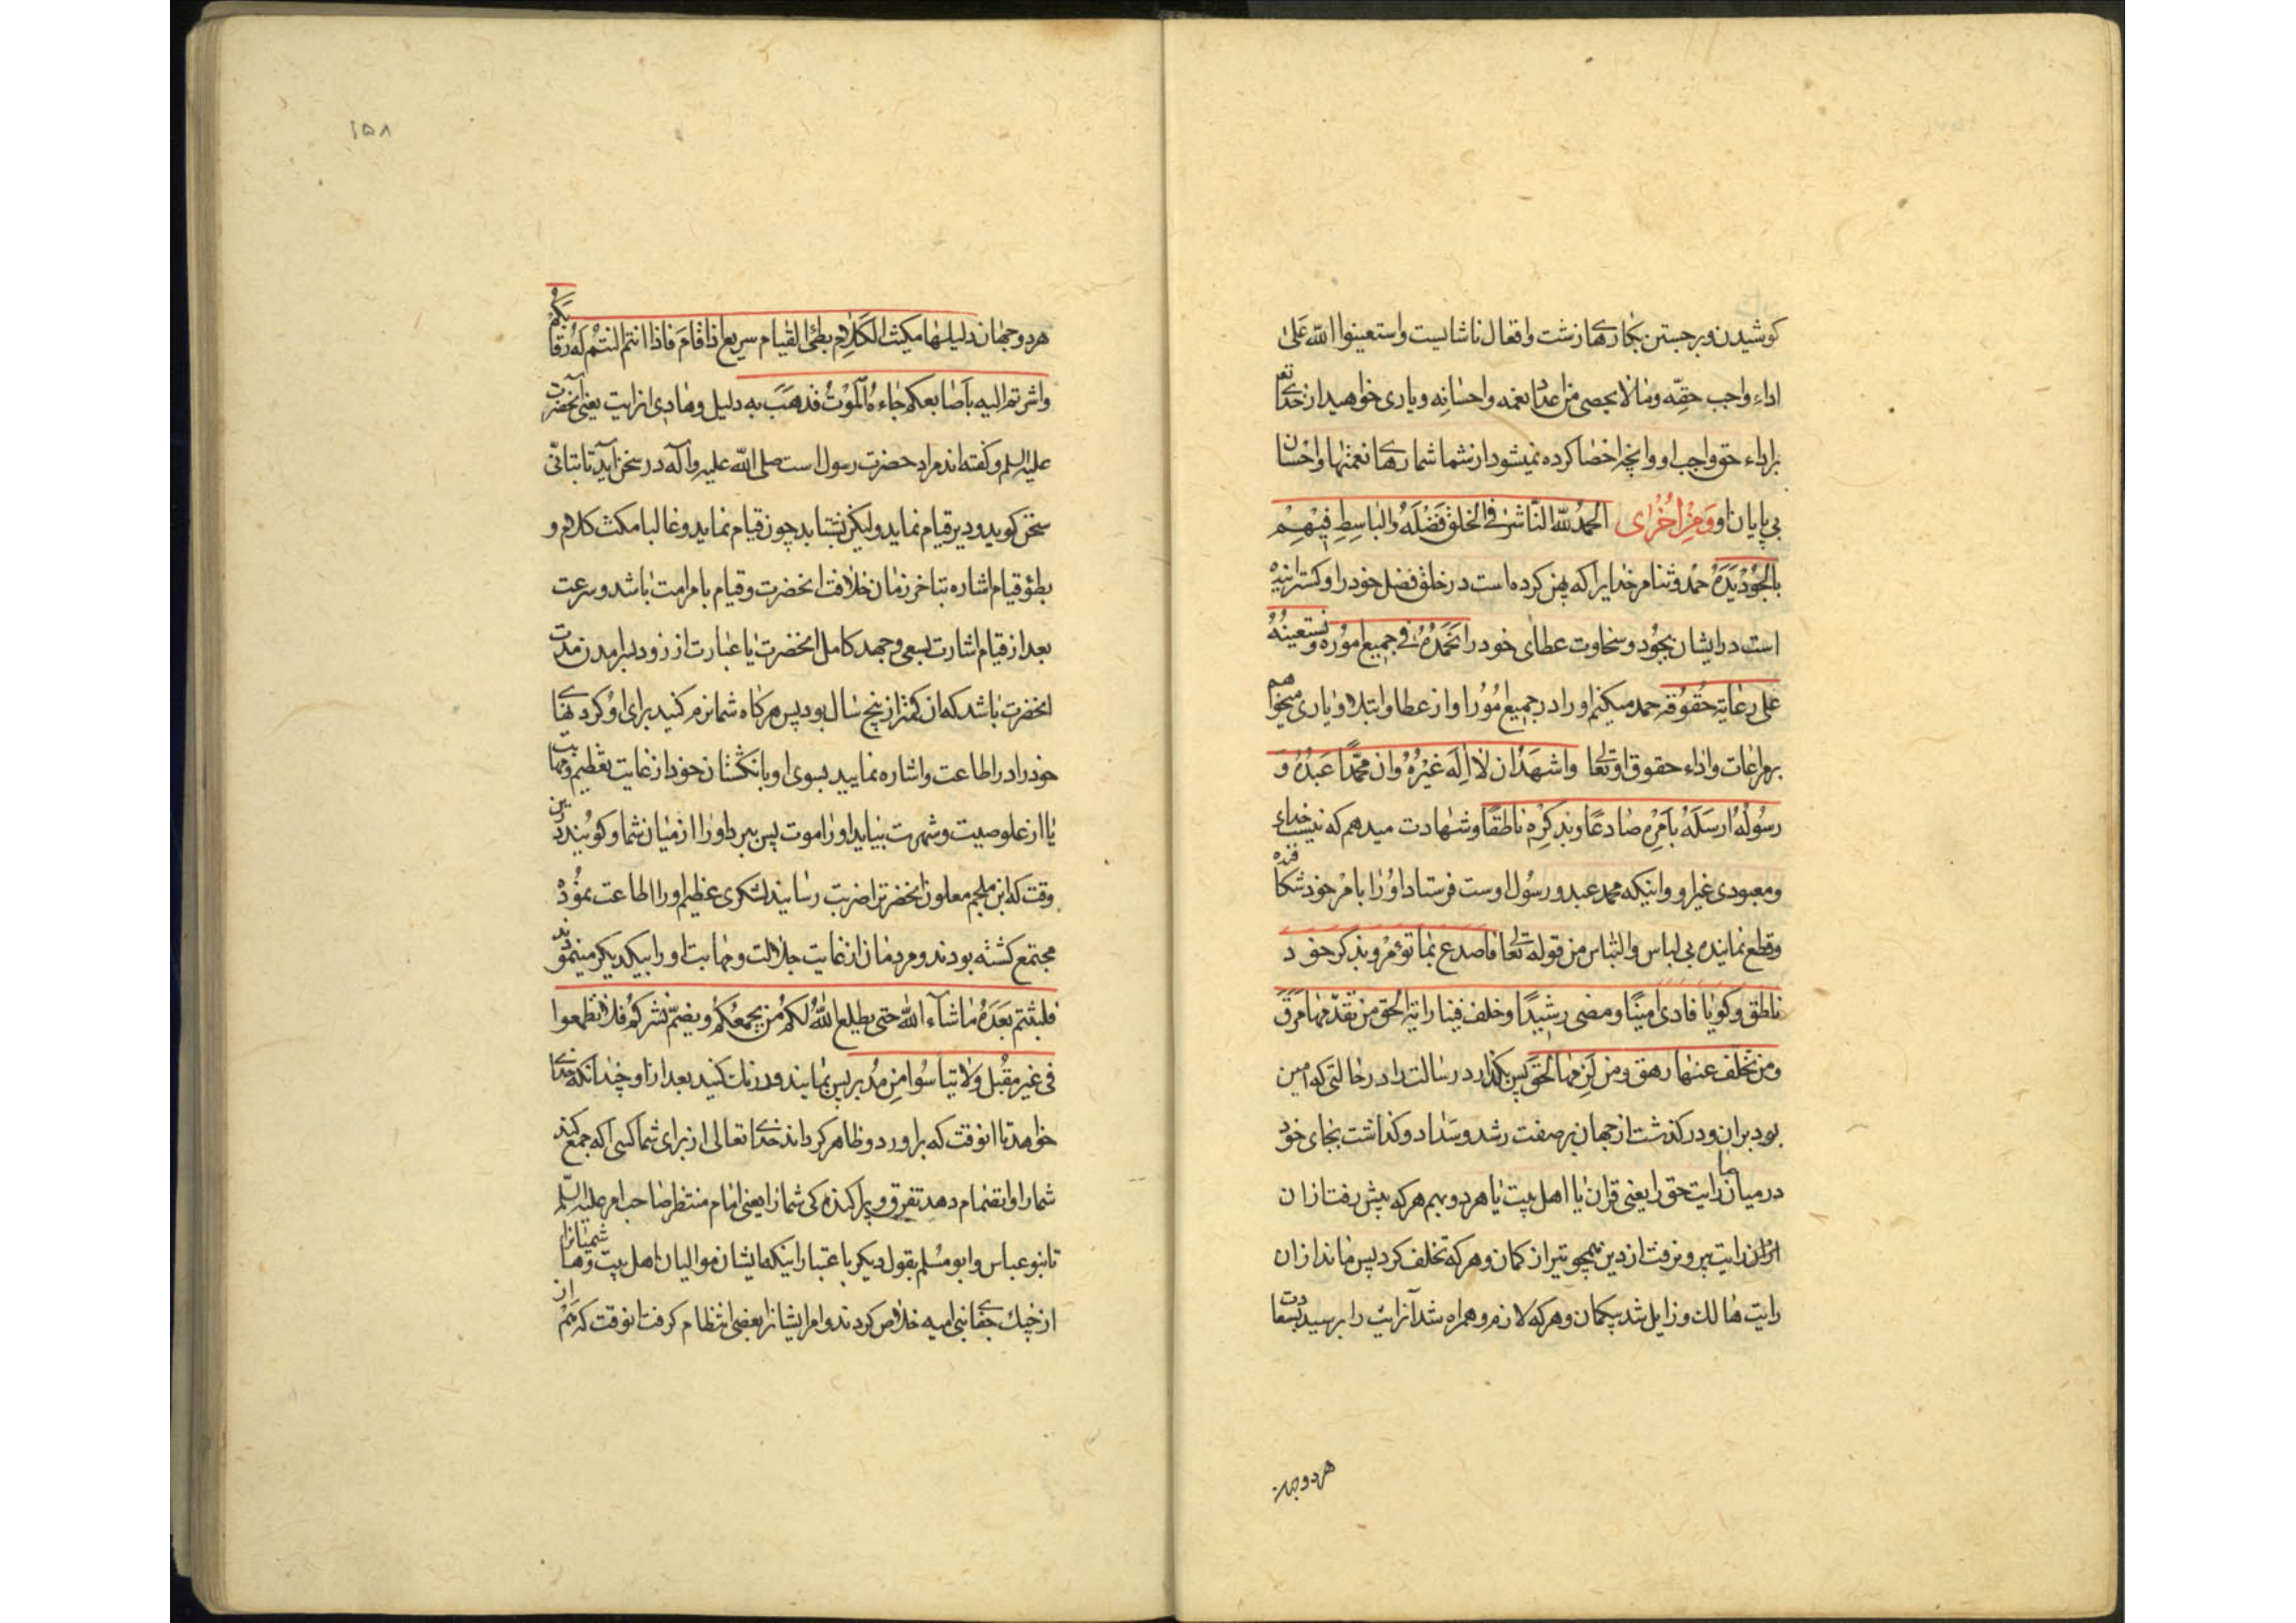 كوشيدن و برجستن بكارهاء زشت و افعال ناشايست و استعينوا الله على
اداء واجب حقّه و ما لا يحصى من اعداد نعمه و احسانه و يارى خواهيد از خداى تعـ
بر اداء حق واجب او و انچه احصا كرده نميشود از شما شمارهاء نعمتها و احسان
بى پايان او و من اخرى الحمد لله الناشر فى الخلق فضله و الباسط فيهم
بالجود يده حمد و ثنا مر خدايرا كه پهن كرده است در خلق فضل خود را و كسترانيده
است در ايشان بجود و سخاوت عطاى خود را نحمده فى جميع اموره و نستعينه
على رعاية حقوقه حمد ميكنم او را در جميع امور او از عطا و ابتلاء و يارى ميخواهم
بر مراعات و اداء حقوق او تعالى و اشهد ان لا اله غيره و ان محمّدًا عبده و
رسوله ارسله بامره صادعًا و بذكره ناطقًا و شهادت ميدهم كه نيست خداى
و معبودى غير او و اينكه محمد عبد و رسول اوست فرستاد او را بامر خود شكافنده
و قطع نماينده بى لباس و التباس من قوله تعالى فاصدع بما تؤمر و بذكر خود
ناطق و كويا فادى امينًا و مضى رشيدًا و خلف فينا راية الحق من تقدّمها مرق
و من تخلف عنها زهق و من لزمها لحق پس بگذارد رسالت را در حالتى كه امين
بود بران و در كذشت از جهان بر صفت رشد و سداد و كذاشت بجاى خود
در ميان ما رايت حق را يعنى قران يا اهل بيت يا هر دو بهم هر كه پيش رفت از ان
از ان رايت بيرون رفت از دين همچو تير از كمان و هر كه تخلف كرد پس ماند از ان
رايت هالك و زايل شد بيكمان و هر كه لازم و همراه شد آن رايت را برسيد بسعادت
هر دو جهان
۱۵۸
هر دو جهان دليلها مكيث الكلام بطئ القيام سريع اذا قام فاذا انتم النتم له رقابكم
و اشرتم اليه باصابعكم جاءه الموت فذهب به دليل و هادى ان رايت يعنى آنحضرت
عليه السلم و كفته اند مراد حضرت رسول است صلى الله عليه و آله در سخن آيد تا بتأنّى
سخن كويد و دير قيام نمايد و ليكن بشتابد چون قيام نمايد و غالبا مكث كلام و
بطؤ قيام اشاره بتاخر زمان خلافت انحضرت و قيام بامر امت باشد و سرعت
بعد از قيام اشارت بسعى و جهد كامل انحضرت يا عبارت از زود بسر امدن مدت
انحضرت باشد كه ان كمتر از پنج سال بود پس هر كاه شما نرم كنيد براى او كردنهاى
خود را در اطاعت و اشاره نماييد بسوى او بانكشتان خود از غايت تعظيم و مهابت
يا از علو صيت و شهرت بيايد او را موت پس ببرد او را از ميان شما و كويند در اين
وقت كه ابن ملجم معلون انحضرترا ضربت رسانيد لشكرى عظيم او را اطاعت نموده
مجتمع كشته بودند و مردمان از غايت جلالت و مهابت او را بيكديكر مينمودند
فلبثتم بعده ما شآء الله حتى يطلع الله لكم من يجمعكم و يضمّ نشركم فلا تطمعوا
فى غير مقبل و لا تيأسوا من مدبر پس بمانيد و درنك كنيد بعد از او چندانكه خداى
خواهد تا انوقت كه براورد و ظاهر كرداند خداى تعالى از براى شما كسى را كه جمع كند
شما را و انضمام دهد تفرق و پراكندكى شما را يعنى امام منتظر صاحب امر عليه السلم
تا بنو عباس و ابو مسلم بقول ديكر باعتبار اينكه ايشان مواليان اهل بيت و هاشميانرا
از چنك جفاى بنى اميه خلاص كردند و امر ايشان از بعضى انتظام كرفت